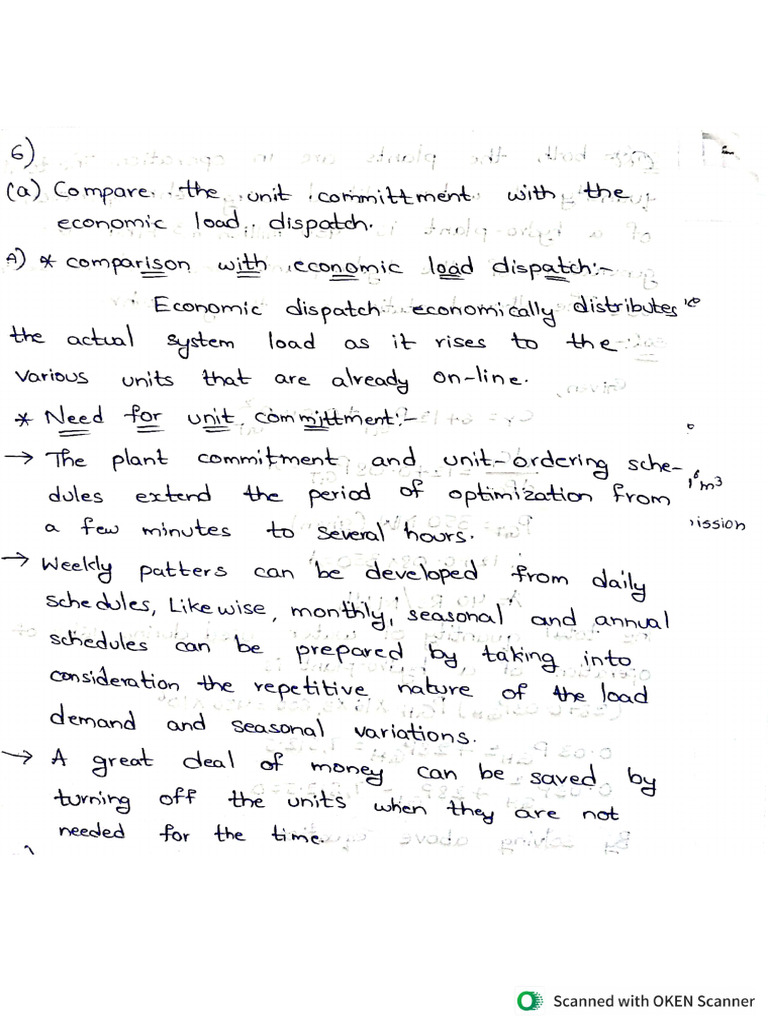 6)
(a) Compare the unit committment with the
economic load dispatch.
A) * comparison with economic load dispatch:-
Economic dispatch economically distributes
the actual system load as it rises to the
various units that are already on-line.
* Need for unit committment:-
→ The plant commitment and unit-ordering sche-
dules extend the period of optimization from
a few minutes to several hours.
→ Weekly patters can be developed from daily
schedules, Likewise, monthly, seasonal and annual
schedules can be prepared by taking into
consideration the repetitive nature of the load
demand and seasonal variations.
→ A great deal of money can be saved by
turning off the units when they are not
needed for the time.
m³
ission
Scanned with OKEN Scanner